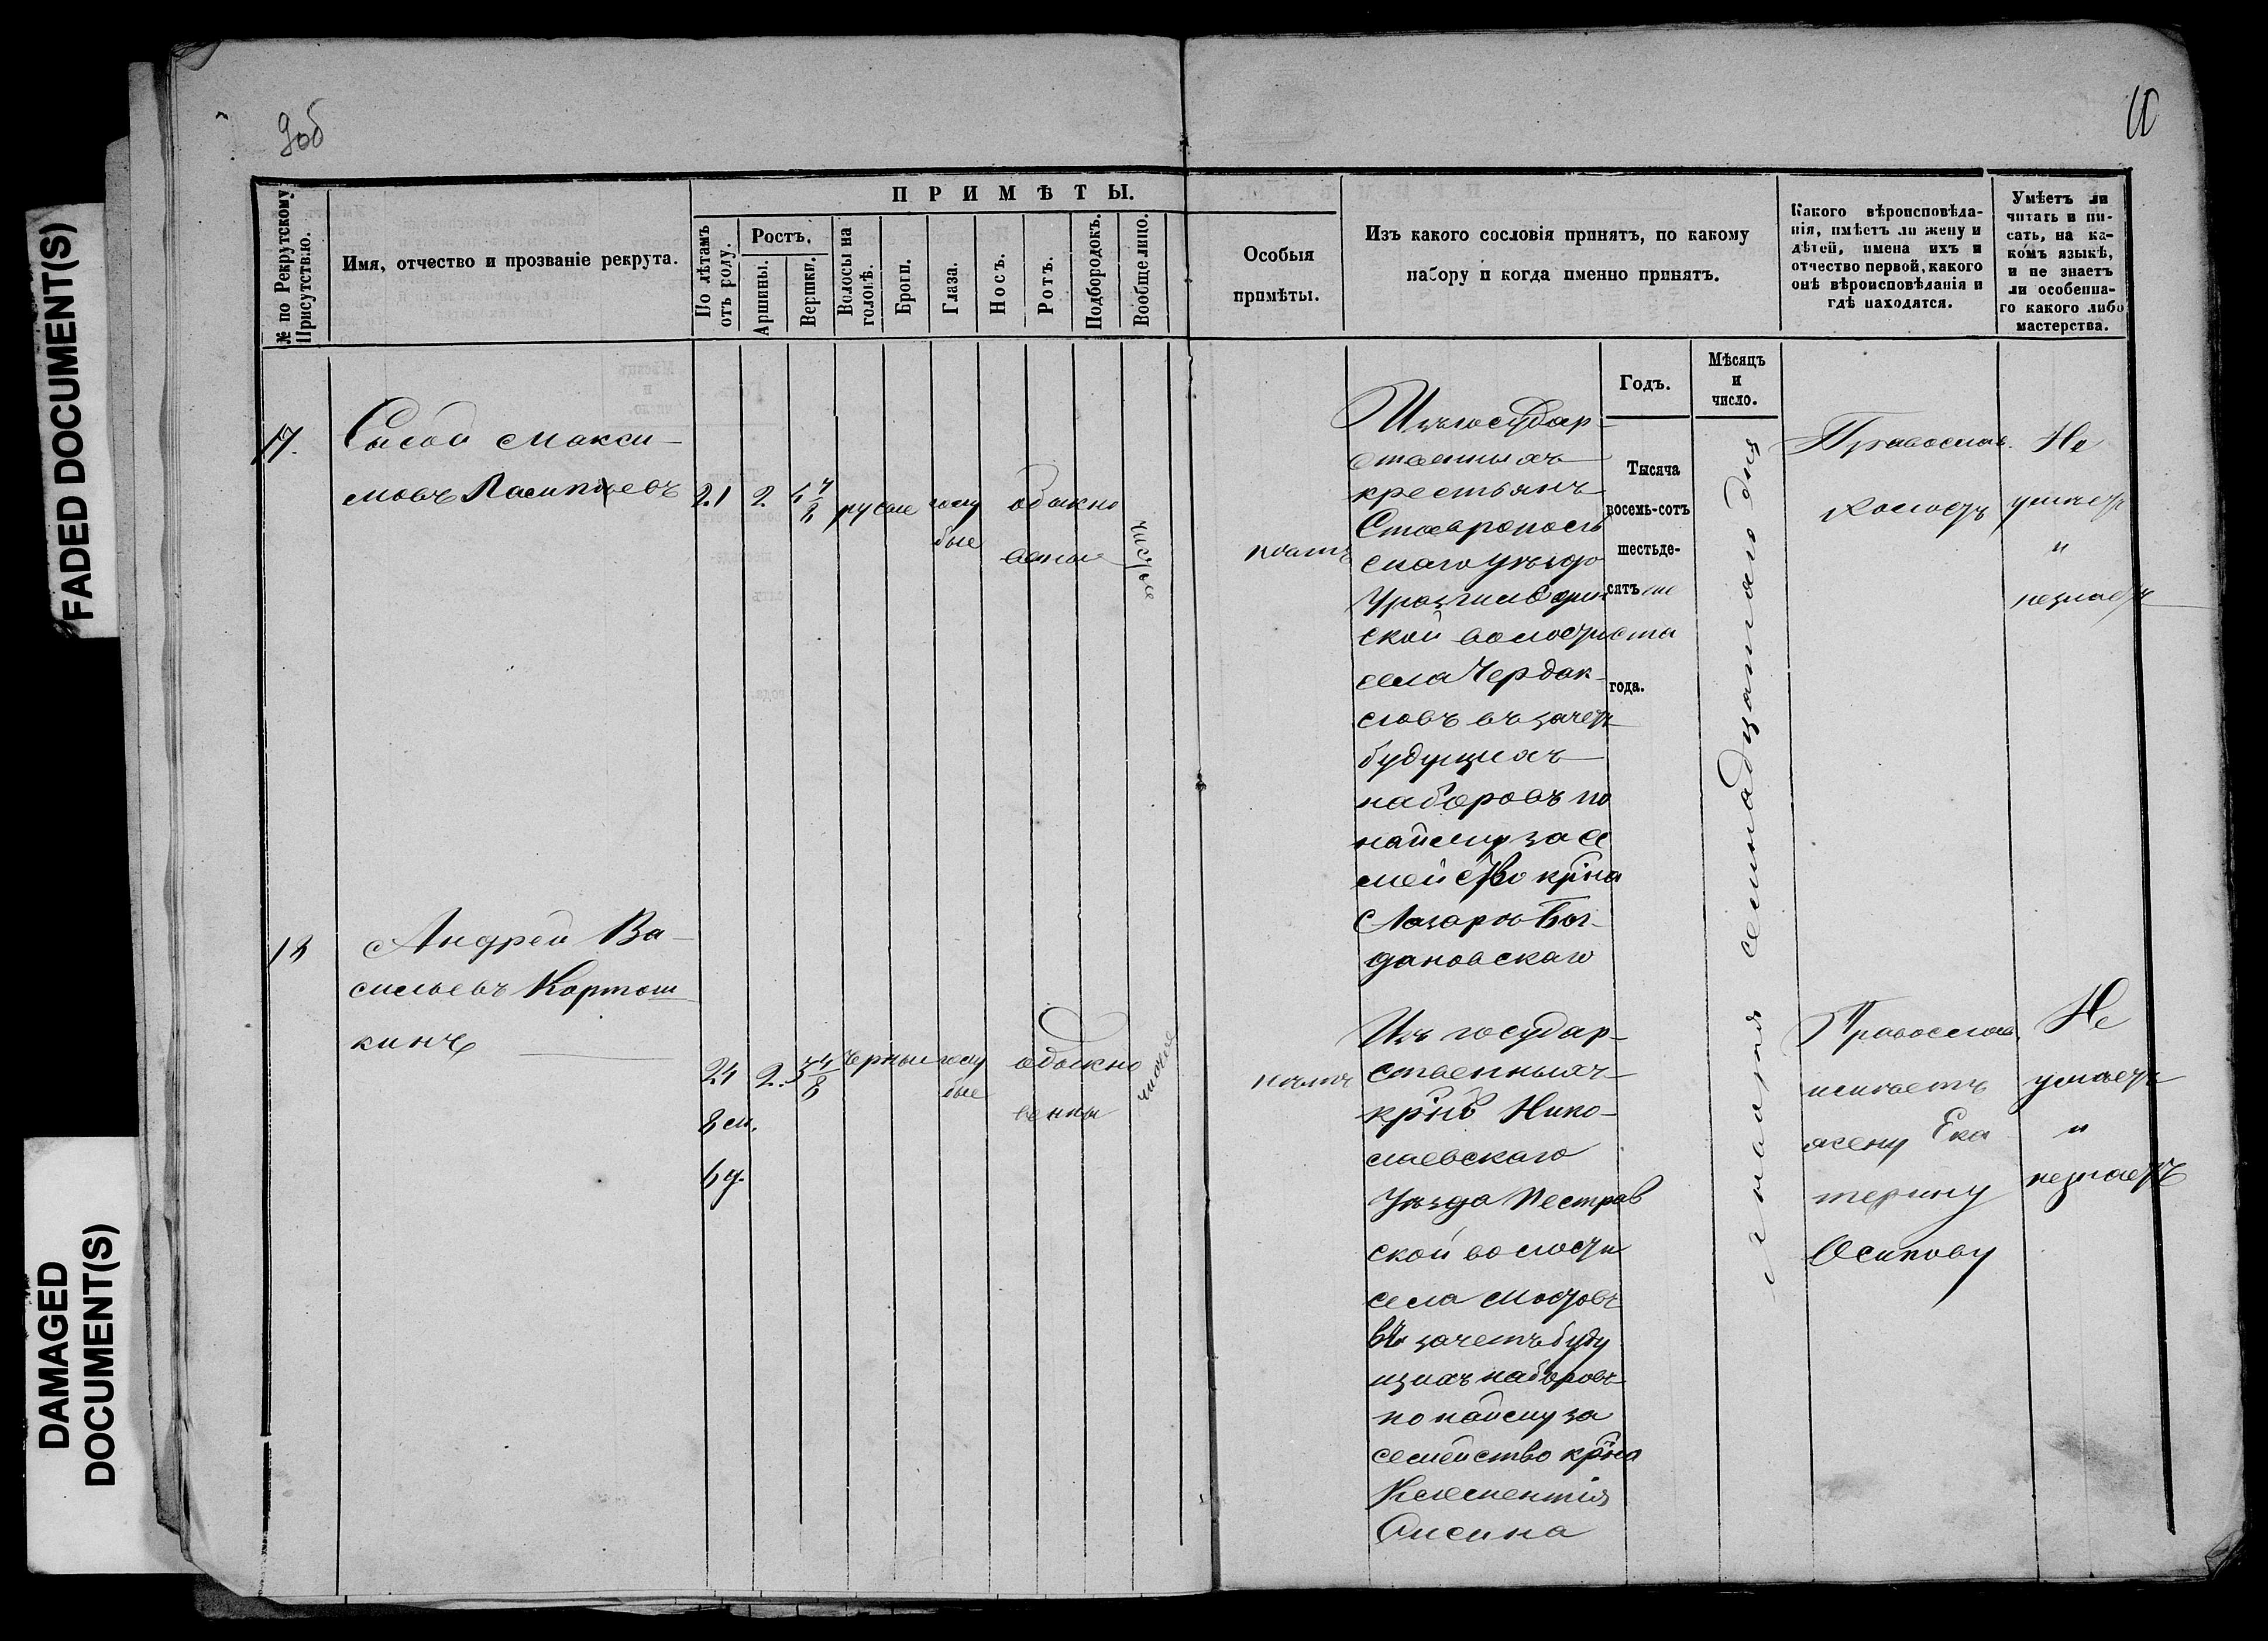 FADED DOCUMENT(S)
DAMAGED
DOCUMENT(S)
9об
10
№ по Рекрутскому
Присутствію.
Имя, отчество и прозваніе рекрута.
ПРИМѢТЫ.
По лѣтамъ
отъ роду.
Ростъ.
Аршины.
Вершки.
Волосы на
головѣ.
Брови.
Глаза.
Носъ.
Ротъ.
Подбородокъ.
Вообще лицо.
Особыя
примѣты.
Изъ какого сословія принятъ, по какому
набору и когда именно принятъ.
Какого вѣроисповѣда-
нія, имѣетъ ли жену и
дѣтей, имена ихъ и
отчество первой, какого
онѣ вѣроисповѣданія и
гдѣ находятся.
Умѣетъ ли
читать и пи-
сать, на ка-
комъ языкѣ,
и не знаетъ
ли особенна-
го какого либо
мастерства.
Годъ.
Мѣсяцъ
и
число.
17.
Сысой Макси-
мовъ
21
2
русые
голу
бые
обыкно
венные
чистое
нѣтъ
Изъ государ-
ственныхъ
крестьянъ
Ставрополь
скаго уѣзда
ской волости
села Чердак-
ловъ въ зачетъ
будущихъ
наборовъ по
найму за се
мейство кр҃на
Лазаря Бог-
дановскаго
Тысяча
восемь-сотъ
шестьде-
сятъ
года.
Генваря семнадцатаго дня
Православ.
холостъ
Не
умѣетъ
и
незнаетъ
18
Андрей Ва-
сильевъ Картош
кинъ
24
8 м.
6 д.
2.
3 4/8
черные
голу
бые
обыкно
венны
чистое
нѣтъ
Изъ государ-
ственныхъ
кр҃нъ Нико-
лаевскаго
Уѣзда Пестрав
ской волости
села Мостовъ
въ зачетъ буду
щихъ наборовъ
по найму за
семейство кр҃на
Климентія
Православ.
имѣетъ
жену Ека
терину
Осипову
Не
умѣетъ
и
незнаетъ